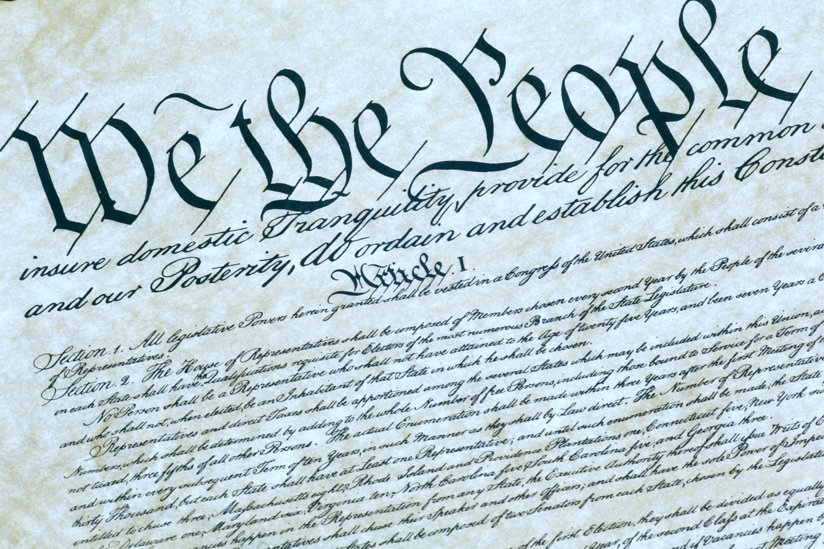 We the People
insure domestic Tranquility, provide for the common
and our Posterity, do ordain and establish this Const
Article I
Section 1. All legislative Powers herein granted shall be vested in a Congress of the United States, which shall consist of a
of Representatives.
Section 2. The House of Representatives shall be composed of Members chosen every second Year by the People of the several
in each State shall have the Qualifications requisite for Electors of the most numerous Branch of the State Legislature.
No Person shall be a Representative who shall not have attained to the Age of twenty five Years, and been seven Years a
and who shall not, when elected, be an Inhabitant of that State in which he shall be chosen.
Representatives and direct Taxes shall be apportioned among the several States which may be included within this Union,
Numbers, which shall be determined by adding to the whole Number of free Persons, including those bound to Service for a Term of
not taxed, three fifths of all other Persons. The actual Enumeration shall be made within three Years after the first Meeting of
and within every subsequent Term of ten Years, in such Manner as they shall by Law direct. The Number of Representatives
thirty Thousand, but each State shall have at least one Representative; and until such enumeration shall be made, the State
entitled to chuse three, Massachusetts eight, Rhode Island and Providence Plantations one, Connecticut five, New York
Delaware one, Maryland six, Virginia ten, North Carolina five, South Carolina five, and Georgia three.
happen in the Representation from any State, the Executive Authority thereof shall issue Writs of
shall chuse their Speaker and other Officers; and shall have the sole Power of
shall be composed of two Senators from each State, chosen by the
of the first Election, they shall be divided as equally
Year, of the second Class at the
and if Vacancies happen by
Meeting